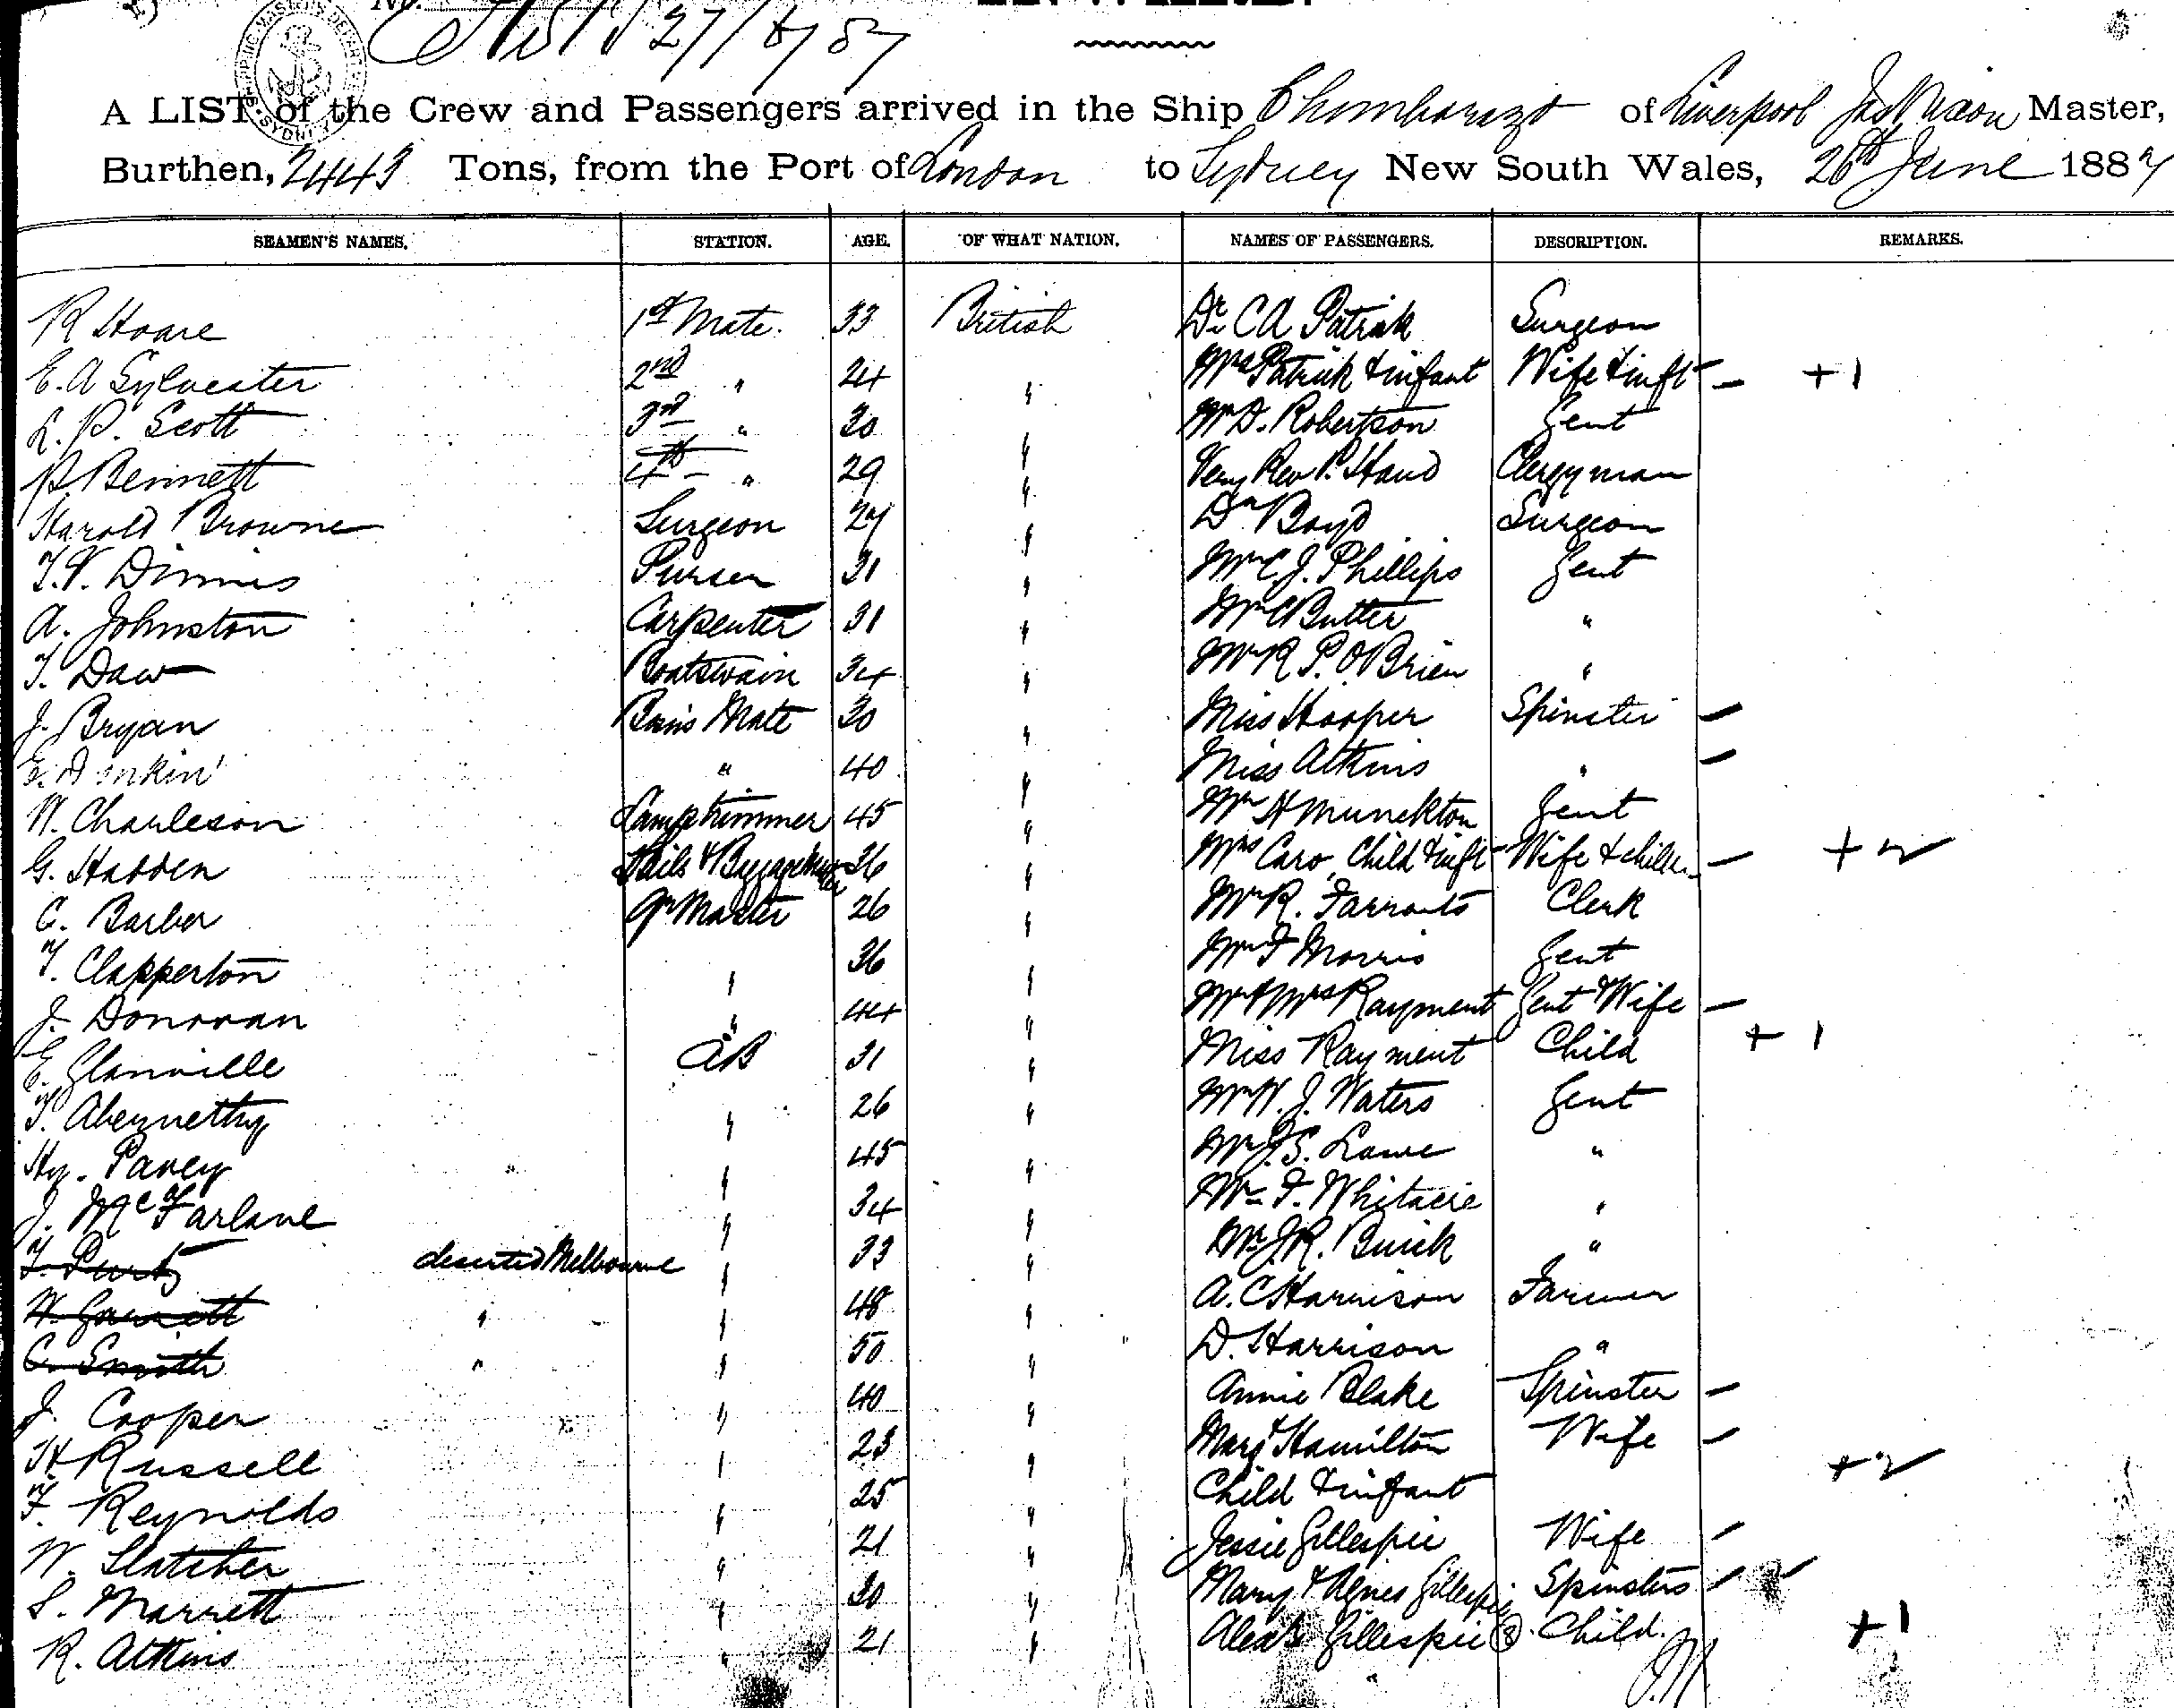 No.
27/6/87
SHIPPING MASTER'S DEPART SYDNEY
A LIST of the Crew and Passengers arrived in the Ship Chimborazo of Liverpool Jas Nixon Master,
Burthen, 2443 Tons, from the Port of London to Sydney New South Wales, 26th June 1887
SEAMEN'S NAMES. STATION. AGE. OF WHAT NATION. NAMES OF PASSENGERS. DESCRIPTION. REMARKS.
R Hoare 1st Mate. 33 British Dr C A Patrick Surgeon
E. A Sylvester 2nd " 24 " Mrs Patrick & infant Wife & inft - + 1
L. P. Scott 3rd " 30 " Mr D. Robertson Gent
P Bennett 4th - " 29 " Very Rev P. Hand Clergyman
Harold Browne Surgeon 27 " Dr Boyd Surgeon
T. V. Dinnis Purser 31 " Mr C. J. Phillips Gent
A. Johnston Carpenter 31 " Mr C Butter "
T. Daw Boatswain 34 " Mr R P. O'Brien "
J. Bryan Bosn's Mate 30 " Miss Hooper Spinster -
E. " 40 " Miss Atkins " -
W. Charleson Lamptrimmer 45 " Mr H Munckton Gent
G. Hadden Mails & Baggage 36 " Mrs Caro, Child & inft Wife & childn - + 2
C. Barber Qr Master 26 " Mr R. Farrants Clerk
T. Clapperton " 36 " Mr F Morris Gent
J. Donovan " 44 " Mr & Mrs Rayment Gent & Wife -
E. Glanville AB 31 " Miss Rayment Child + 1
T. Abernethy " 26 " Mr W. J. Waters Gent
Hy. Pavey " 45 " Mr J. S. Lowe "
J. McFarlane " 34 " Mr F. Whitacre "
T. deserted Melbourne " 33 " Mr J. R. Buick "
W. Garrett " " 48 " A. C Harrison Farmer
C. Smith " " 50 " D. Harrison "
J. Cooper " 40 " Annie Blake Spinster -
H Russell " 23 " Margt Hamilton Wife -
F. Reynolds " 25 " Child & infant + 2
W. Slatcher " 21 " Jessie Gillespie Wife -
S. Marrett " 30 " Mary & Agnes Gillespie Spinsters - -
R. Atkins " 21 " Alexr Gillespie (3) Child. + 1
"